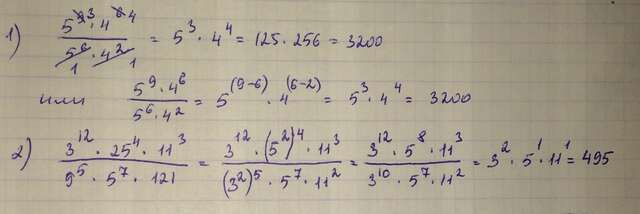 1) (5^9³ · 4^6 4) / (5^6 1 · 4^2 1) = 5³ · 4⁴ = 125 · 256 = 3200
или (5⁹ · 4⁶) / (5⁶ · 4²) = 5⁽⁹⁻⁶⁾ · 4⁽⁶⁻²⁾ = 5³ · 4⁴ = 3200
2) (3¹² · 25⁴ · 11³) / (9⁵ · 5⁷ · 121) = (3¹² · (5²)⁴ · 11³) / ((3²)⁵ · 5⁷ · 11²) = (3¹² · 5⁸ · 11³) / (3¹⁰ · 5⁷ · 11²) = 3² · 5¹ · 11¹ = 495